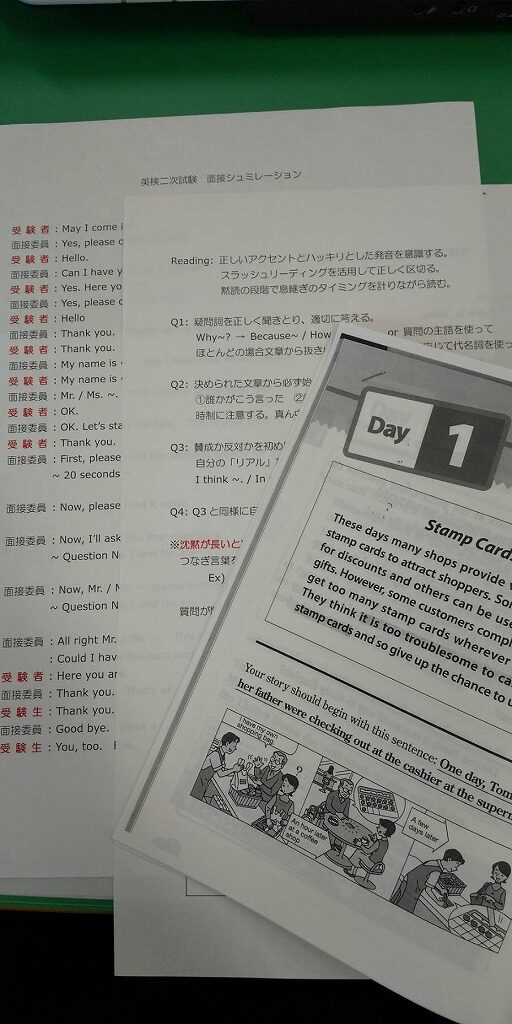 英検二次試験 面接シュミレーション
受験者 : May I come i
面接委員 : Yes, please
受験者 : Hello.
面接委員 : Can I have
受験者 : Yes. Here
面接委員 : Yes, please
受験者 : Hello
面接委員 : Thank you.
受験者 : Thank you.
面接委員 : My name is
受験者 : My name is
面接委員 : Mr. / Ms. ~.
受験者 : OK.
面接委員 : OK. Let's
受験者 : Thank you.
面接委員 : First,
~ 20 seconds
面接委員 : Now, please
面接委員 : Now, I'll ask
~ Question No
面接委員 : Now, Mr. / M
~ Question No
面接委員 : All right Mr.
: Could I have
受験者 : Here you
面接委員 : Thank you.
受験生 : Thank you.
面接委員 : Good bye.
受験生 : You, too.
Reading: 正しいアクセントとハッキリとした発音を意識する。
スラッシュリーディングを活用して正しく区切る。
黙読の段階で息継ぎのタイミングを計りながら読む。
Q1: 疑問詞を正しく聞きとり、適切に答える。
Why~? → Because~ / How or 質問の主語を使って
ほとんどの場合文章から抜き じて代名詞を使っ
Q2: 決められた文章から必ず始
①誰がこう言った ②
時制に注意する。真ん
Q3: 賛成か反対かを初め
自分の「リアル」
I think ~. / In
Q4: Q3 と同様に自
※沈黙が長いと
つなぎ言葉を
Ex)
質問が
Day 1
Stamp Card
These days many shops provide
stamp cards to attract shoppers.
for discounts and others can be use
gifts. However, some customers comp
get too many stamp cards wherever
They think it is too troublesome to ca
stamp cards and so give up the chance to u
Your story should begin with this sentence: One day, Tom
her father were checking out at the cashier at the super
I have my own
shopping bag.
?
An hour later
at a coffee
shop
A few
days later